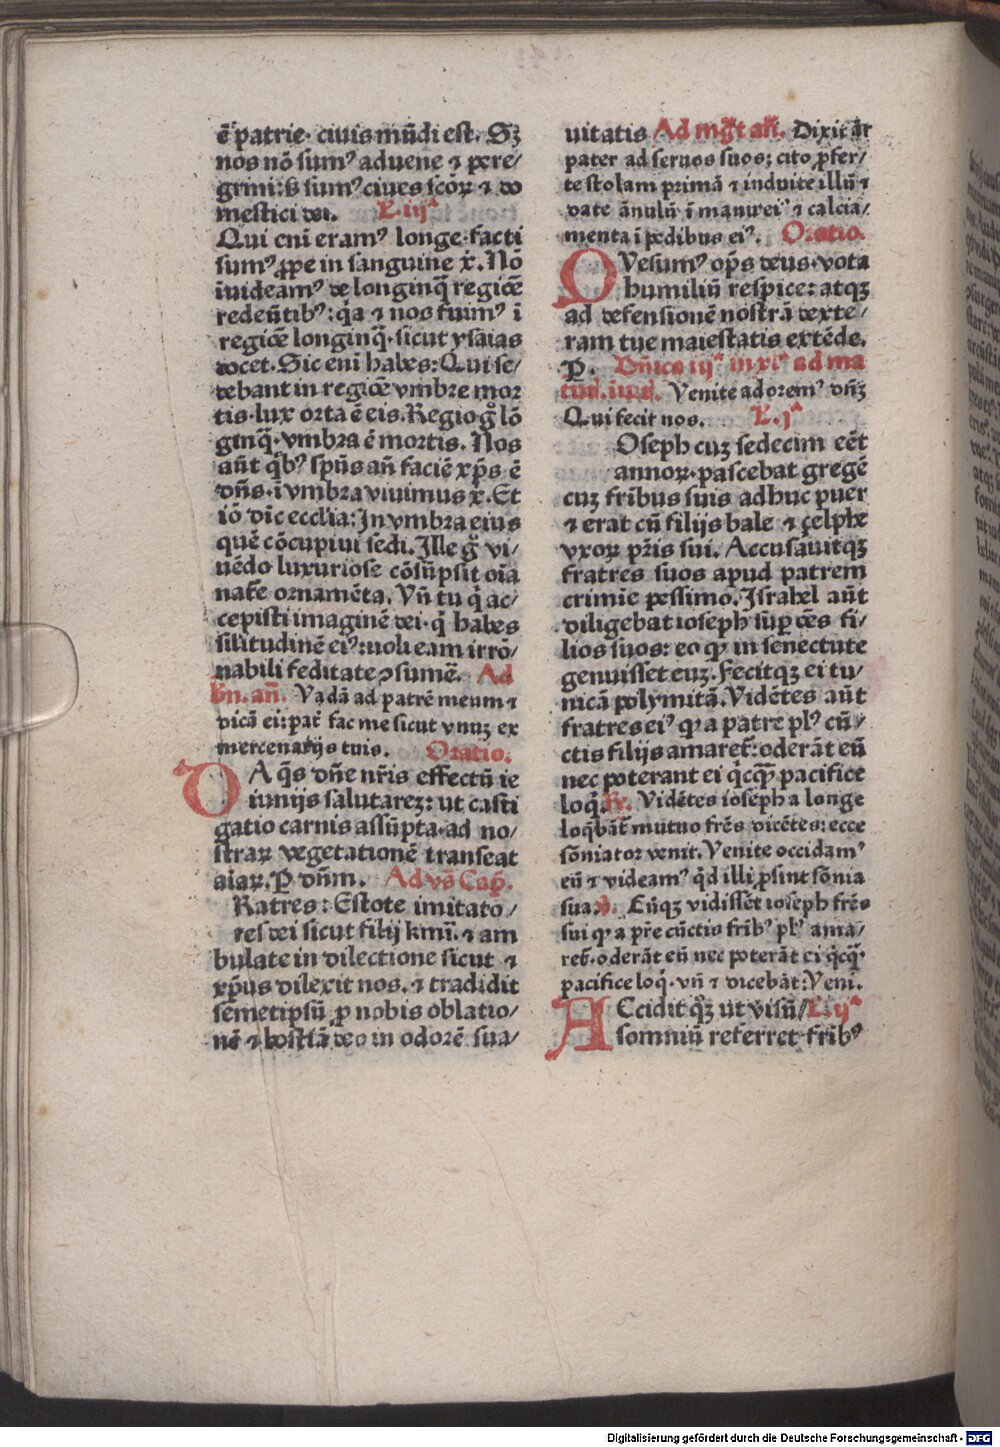 ē patrie· ciuis mūdi est. Sꝫ
nos nō sumꝰ aduene ⁊ pere/
grini: ß sumꝰ ciues scōꝝ ⁊ do
mestici dei. L. iijᵃ
Qui eni eramꝰ longe·facti
sumꝰ ꝓpe in sanguine x̄. Nō
iuideamꝰ de longinq̄ regiōe
redeūtibꝰ: q̇a ⁊ nos fuimꝰ ī
regiōe longinq̄· sicut ysaias
docet. Sic eni habes: Qui se/
debant in regiōe vmbre mor
tis· lux orta ē eis. Regio gͦ lō
ginq̄· vmbra ē mortis. Nos
aūt qͥbꝰ spūs an̄ faciē xp̄s ē
dn̄s· ī vmbra viuimus x̄. Et
iō dic ecclia: In vmbra eius
quē cōcupiui sedi. Ille gͦ vi/
uēdo luxuriose cōsūpsit oīa
nat̄e ornamēta. Vn̄ tu qͥ ac/
cepisti imaginē dei· qͥ habes
silitudinē eiꝰ: noli eam irrō/
nabili feditate ꝯsumē. Ad
bn̄. an̄. Vadā ad patrē meum ⁊
dicā ei: pat̄ fac me sicut vnuꝫ ex
mercenarijs tuis. Oratio.
DA q̄s dn̄e nr̄is effectū ie
iunijs salutareꝫ: ut casti
gatio carnis assūpta· ad no/
straꝝ vegetationē transeat
aīaꝝ. P dn̄m. Ad vs̄ Cap̄.
Ratres: Estote imitato/
res dei sicut filij kmi. ⁊ am
bulate in dilectione sicut ⁊
xp̄us dilexit nos. ⁊ tradidit
semetipsū ꝓ nobis oblatio/
nē ⁊ hostiā deo in odorē sua/
uitatis Ad mgt̄ an̄. Dixit āt
pater ad seruos suos; cito ꝓfer/
te stolam primā ⁊ induite illū ⁊
date ānulū ī manu eiꝰ ⁊ calcia/
menta ī pedibus eiꝰ. Oratio.
QVesumꝰ op̄s deus· vota
humiliū respice: atqꝫ
ad defensionē nostrā dexte/
ram tue maiestatis extēde.
P. Dn̄ica iijᵃ in xlᵃ ad ma
tuti. iuit. Venite adoremꝰ dn̄ꝫ
Qui fecit nos. L. jᵃ
Oseph cuꝫ sedecim eēt
annoꝝ· pascebat gregē
cuꝫ frībus suis adhuc puer
⁊ erat cū filijs bale ⁊ ҫelphe
vxoꝝ pr̄is sui. Accusauitqꝫ
fratres suos apud patrem
crimīe pessimo. Israhel aūt
diligebat ioseph suꝑ oēs fi/
lios suos: eo ꝙ in senectute
genuisset euꝫ. Fecitqꝫ ei tu/
nicā polymitā. Vidētes aūt
fratres eiꝰ ꝙ a patre plꝰ cū/
ctis filijs amaret̄: oderāt eū
nec poterant ei qͥcq̄ꝫ pacifice
loqͥ. Rꝶ. Vidētes ioseph a longe
loq̄bāt̄ mutuo frēs dicētes: ecce
sōniator venit. Venite occidamꝰ
eū ⁊ videamꝰ qͥd illi ꝓsint sōnia
sua. ꝟ. Cūqꝫ vidissēt ioseph frēs
sui ꝙ a pre cūctis fribꝰ plꝰ ama/
ret̄· oderāt eū nec poterāt ei qͥcq̄ꝫ·
pacifice loqͥ· vn̄ ⁊ dicebāt: Veni.
ACcidit qͦꝫ ut visū/ L. ijᵃ
somniū referret fribꝰ
Digitalisierung gefördert durch die Deutsche Forschungsgemeinschaft - DFG